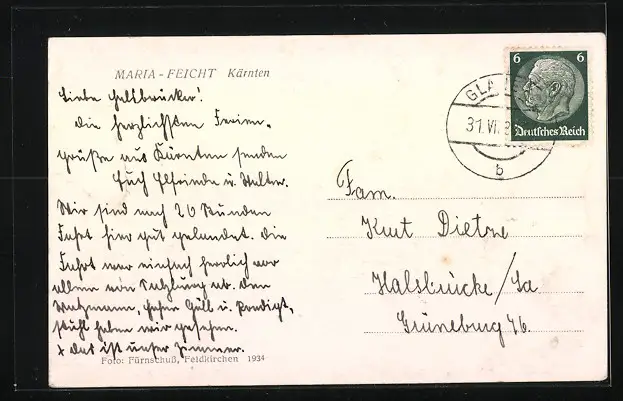 MARIA - FEICHT Kärnten
Liebe Halsbrücker!
Die herzlichsten Ferien-
grüße aus Kärnten senden
Euch Elfriede u. Walter.
Wir sind nach 26 Stunden
Fahrt hier gut gelandet. Die
Fahrt war einfach herrlich vor
allem von Salzburg ab. Den
Watzmann, Hohen Göll u. Predigt,
stuhl haben wir gesehen.
x das ist unser Zimmer.
Foto: Fürnschuß, Feldkirchen 1934
6 6
Deutsches Reich
31.VII.
b
Fam.
Kurt Dietze
Halsbrücke/Sa
Grüneburg 76.